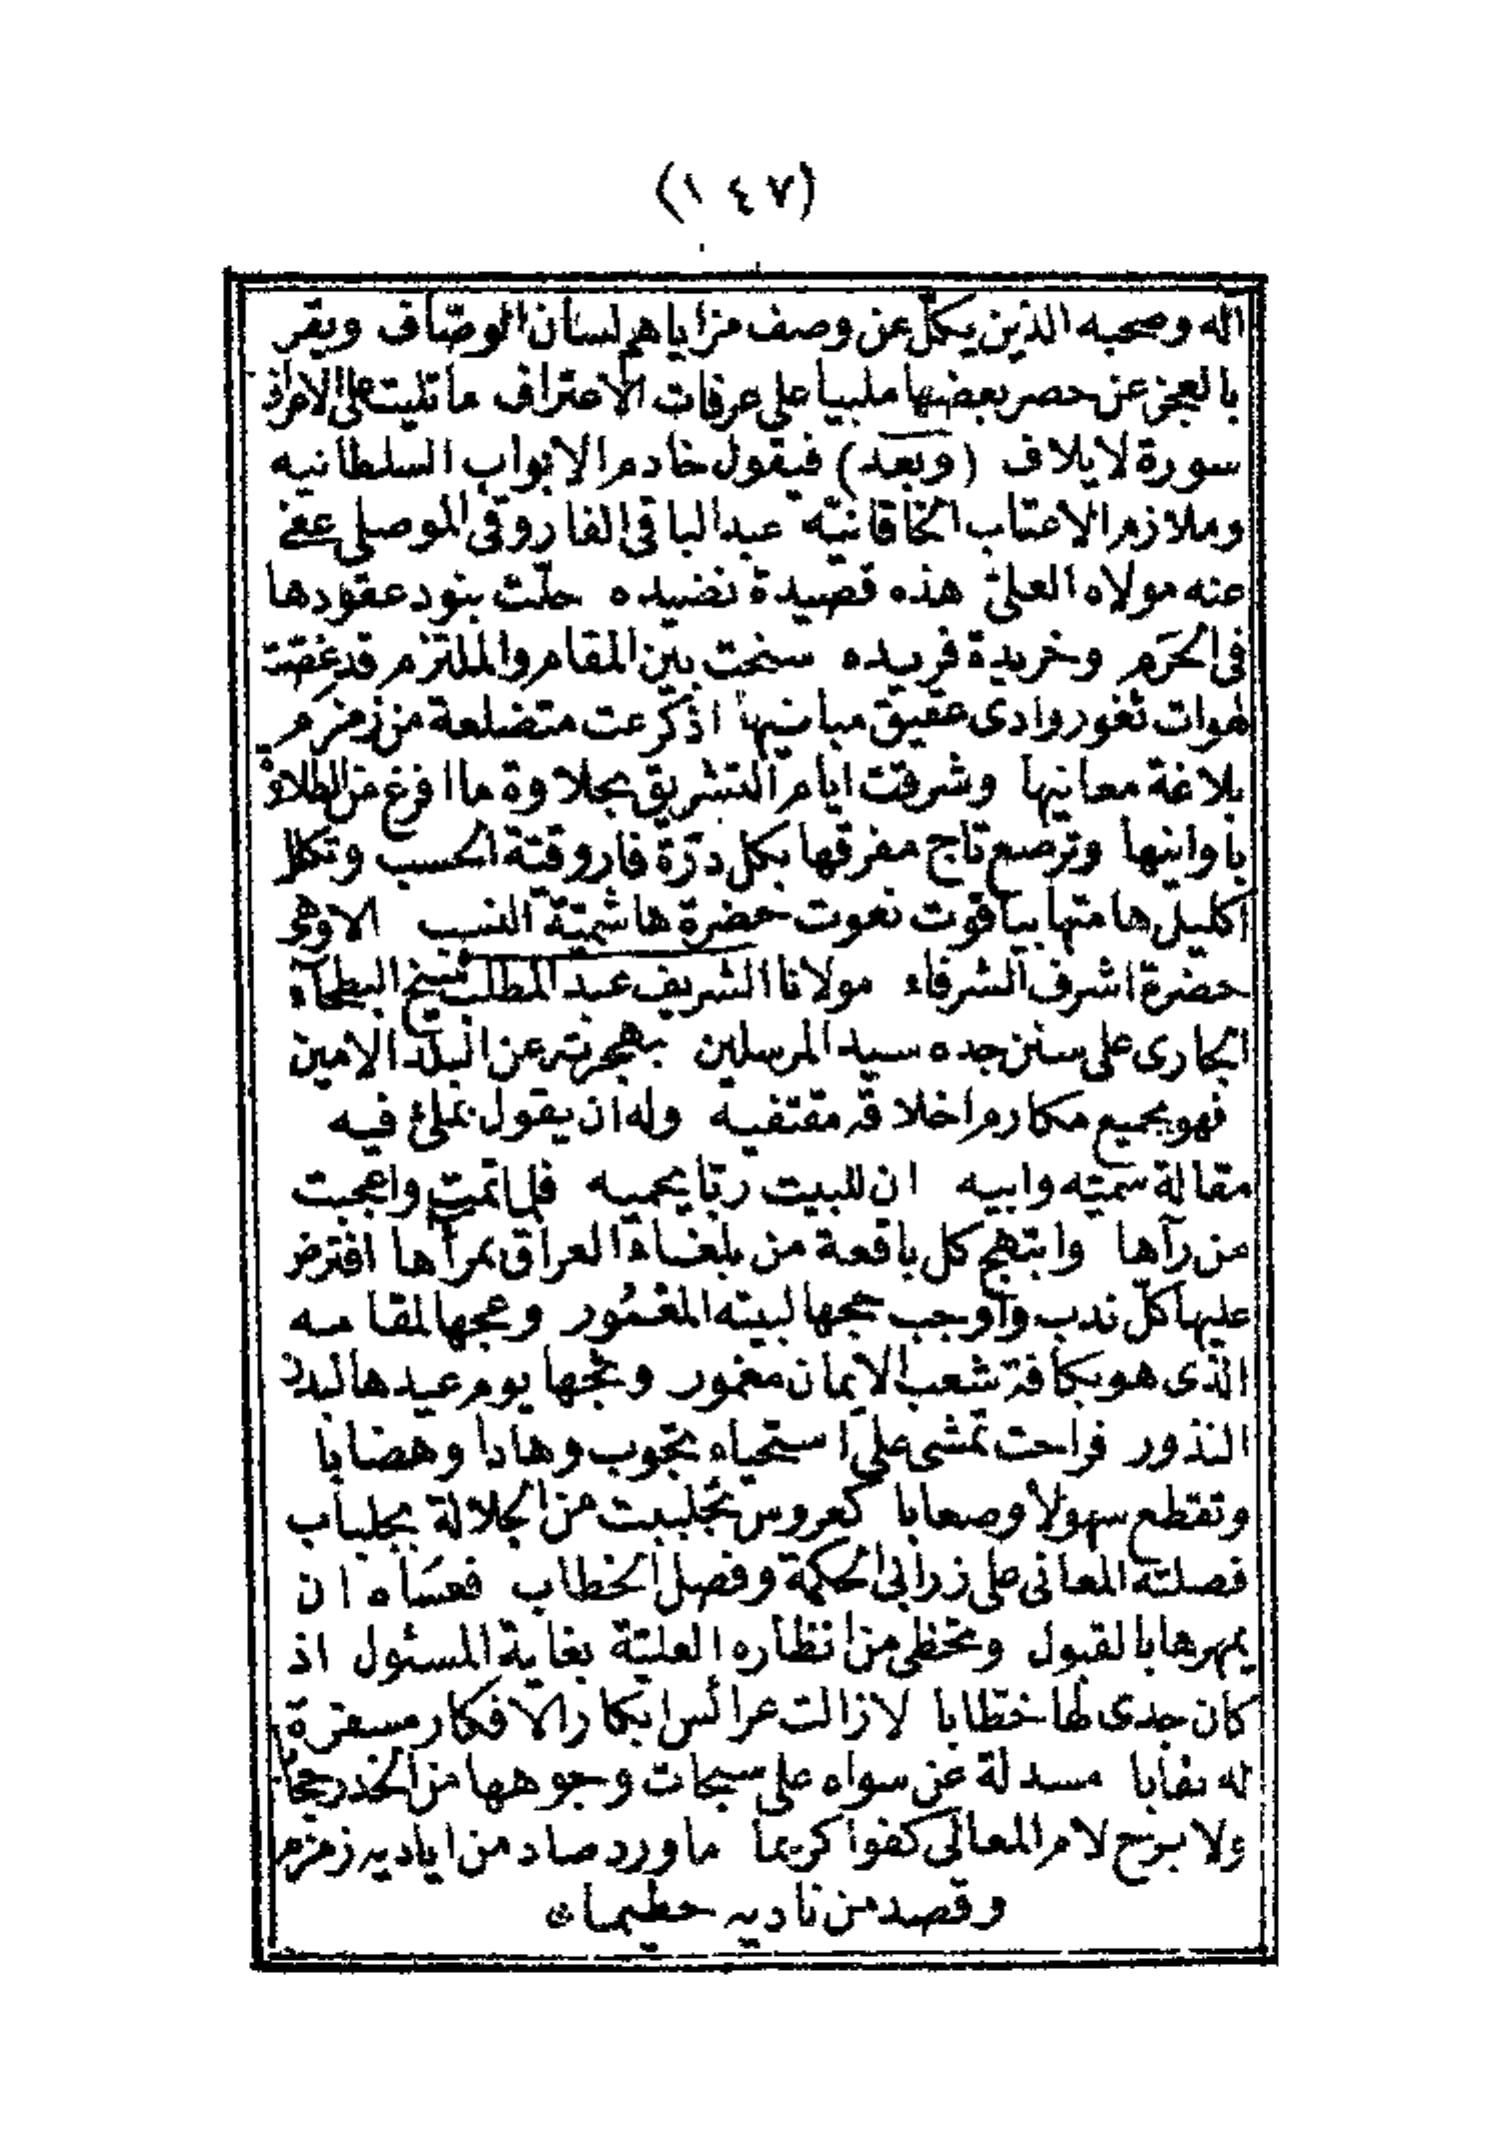 (١٤٧)
آله وصحبه الذين يكلّ عن وصف مزاياهم لسان الوصّاف ويقر
بالعجز عن حصر بعضها ملبيا على عرفات الاعتراف ما تليت على الاعراف
سورة لايلاف (وبعد) فيقول خادم الابواب السلطانيه
وملازم الاعتاب الخاقانيّه عبد الباقى الفاروقى الموصلى عفى
عنه مولاه العلى هذه قصيدة نضيده حلّت بنود عقودها
فى الحَرَم وخريدة فريده سنحت بين المقام والملتزم قد غصّت
لهوات ثغور وادى عقيق مبانيها اذ كرعت متضلعة من زمزم
بلاغة معانيها وشرقت ايام التشريق بحلاوة ما افرغ من الطلاوة
باوانيها وترصع تاج مفرقها بكل درّة فاروقيّة الحسب وتكلل
اكليل هامتها بياقوت نعوت حضرة هاشميّة النسب الا وهى
حضرة اشرف الشرفاء مولانا الشريف عبد المطلب شيخ البطحاء
الجارى على سنن جده سيد المرسلين بهجرته عن البلد الامين
فهو بجميع مكارم اخلاقه مقتفيه وله ان يقول بملئ فيه
مقالة سميّه وابيه ان للبيت ربّا يحميه فلما تمّت واعجبت
من رآها وابتهج كل باقعة من بلغاء العراق بمرآها افترض
عليها كلّ ندب واوجب حجها لبيته المعمُور وعجها لمقامه
الذى هو بكافة شعب الايمان مغمور وثجها يوم عيدها لبدن
النذور فراحت تمشى على استحياء تجوب وهادا وهضابا
وتقطع سهولا وصعابا كعروس تجلببت من الجلالة بجلباب
فصلته المعانى على زرابى الحكمة وفصل الخطاب فعسَاه ان
يمهرها بالقبول وتحظى من انظاره العليّة بغاية المسئول اذ
كان جدى لها خطّابا لا زالت عرائس ابكار الافكار مسفرة
له نقابا مسدلة عن سواه على سبحات وجوهها من الخدر حجابا
ولا برح لام المعالى كفوا كريما ما ورد صاد من اياديه زمزم
وقصد من ناديه حطيما